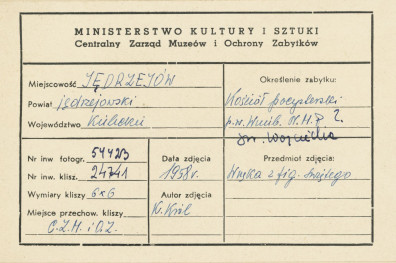 MINISTERSTWO KULTURY I SZTUKI
Centralny Zarząd Muzeów i Ochrony Zabytków
Miejscowość JĘDRZEJÓW
Powiat jędrzejowski
Województwo Kieleckie
Określenie zabytku:
Kościół pocysterski
p.w. Wnieb. N.M.P ?
św. Wojciecha
Nr inw fotogr. 54423
Nr inw. klisz. 24741
Wymiary kliszy 6x6
Miejsce przechow. kliszy
C.Z.M. i O.Z.
Data zdjęcia
1958 r.
Autor zdjęcia
K. Król
Przedmiot zdjęcia:
z fig. świętego